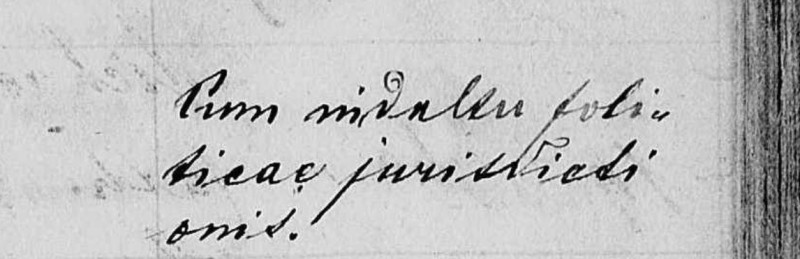 Cum indultu poli=
ticae jurisdicti
onis.